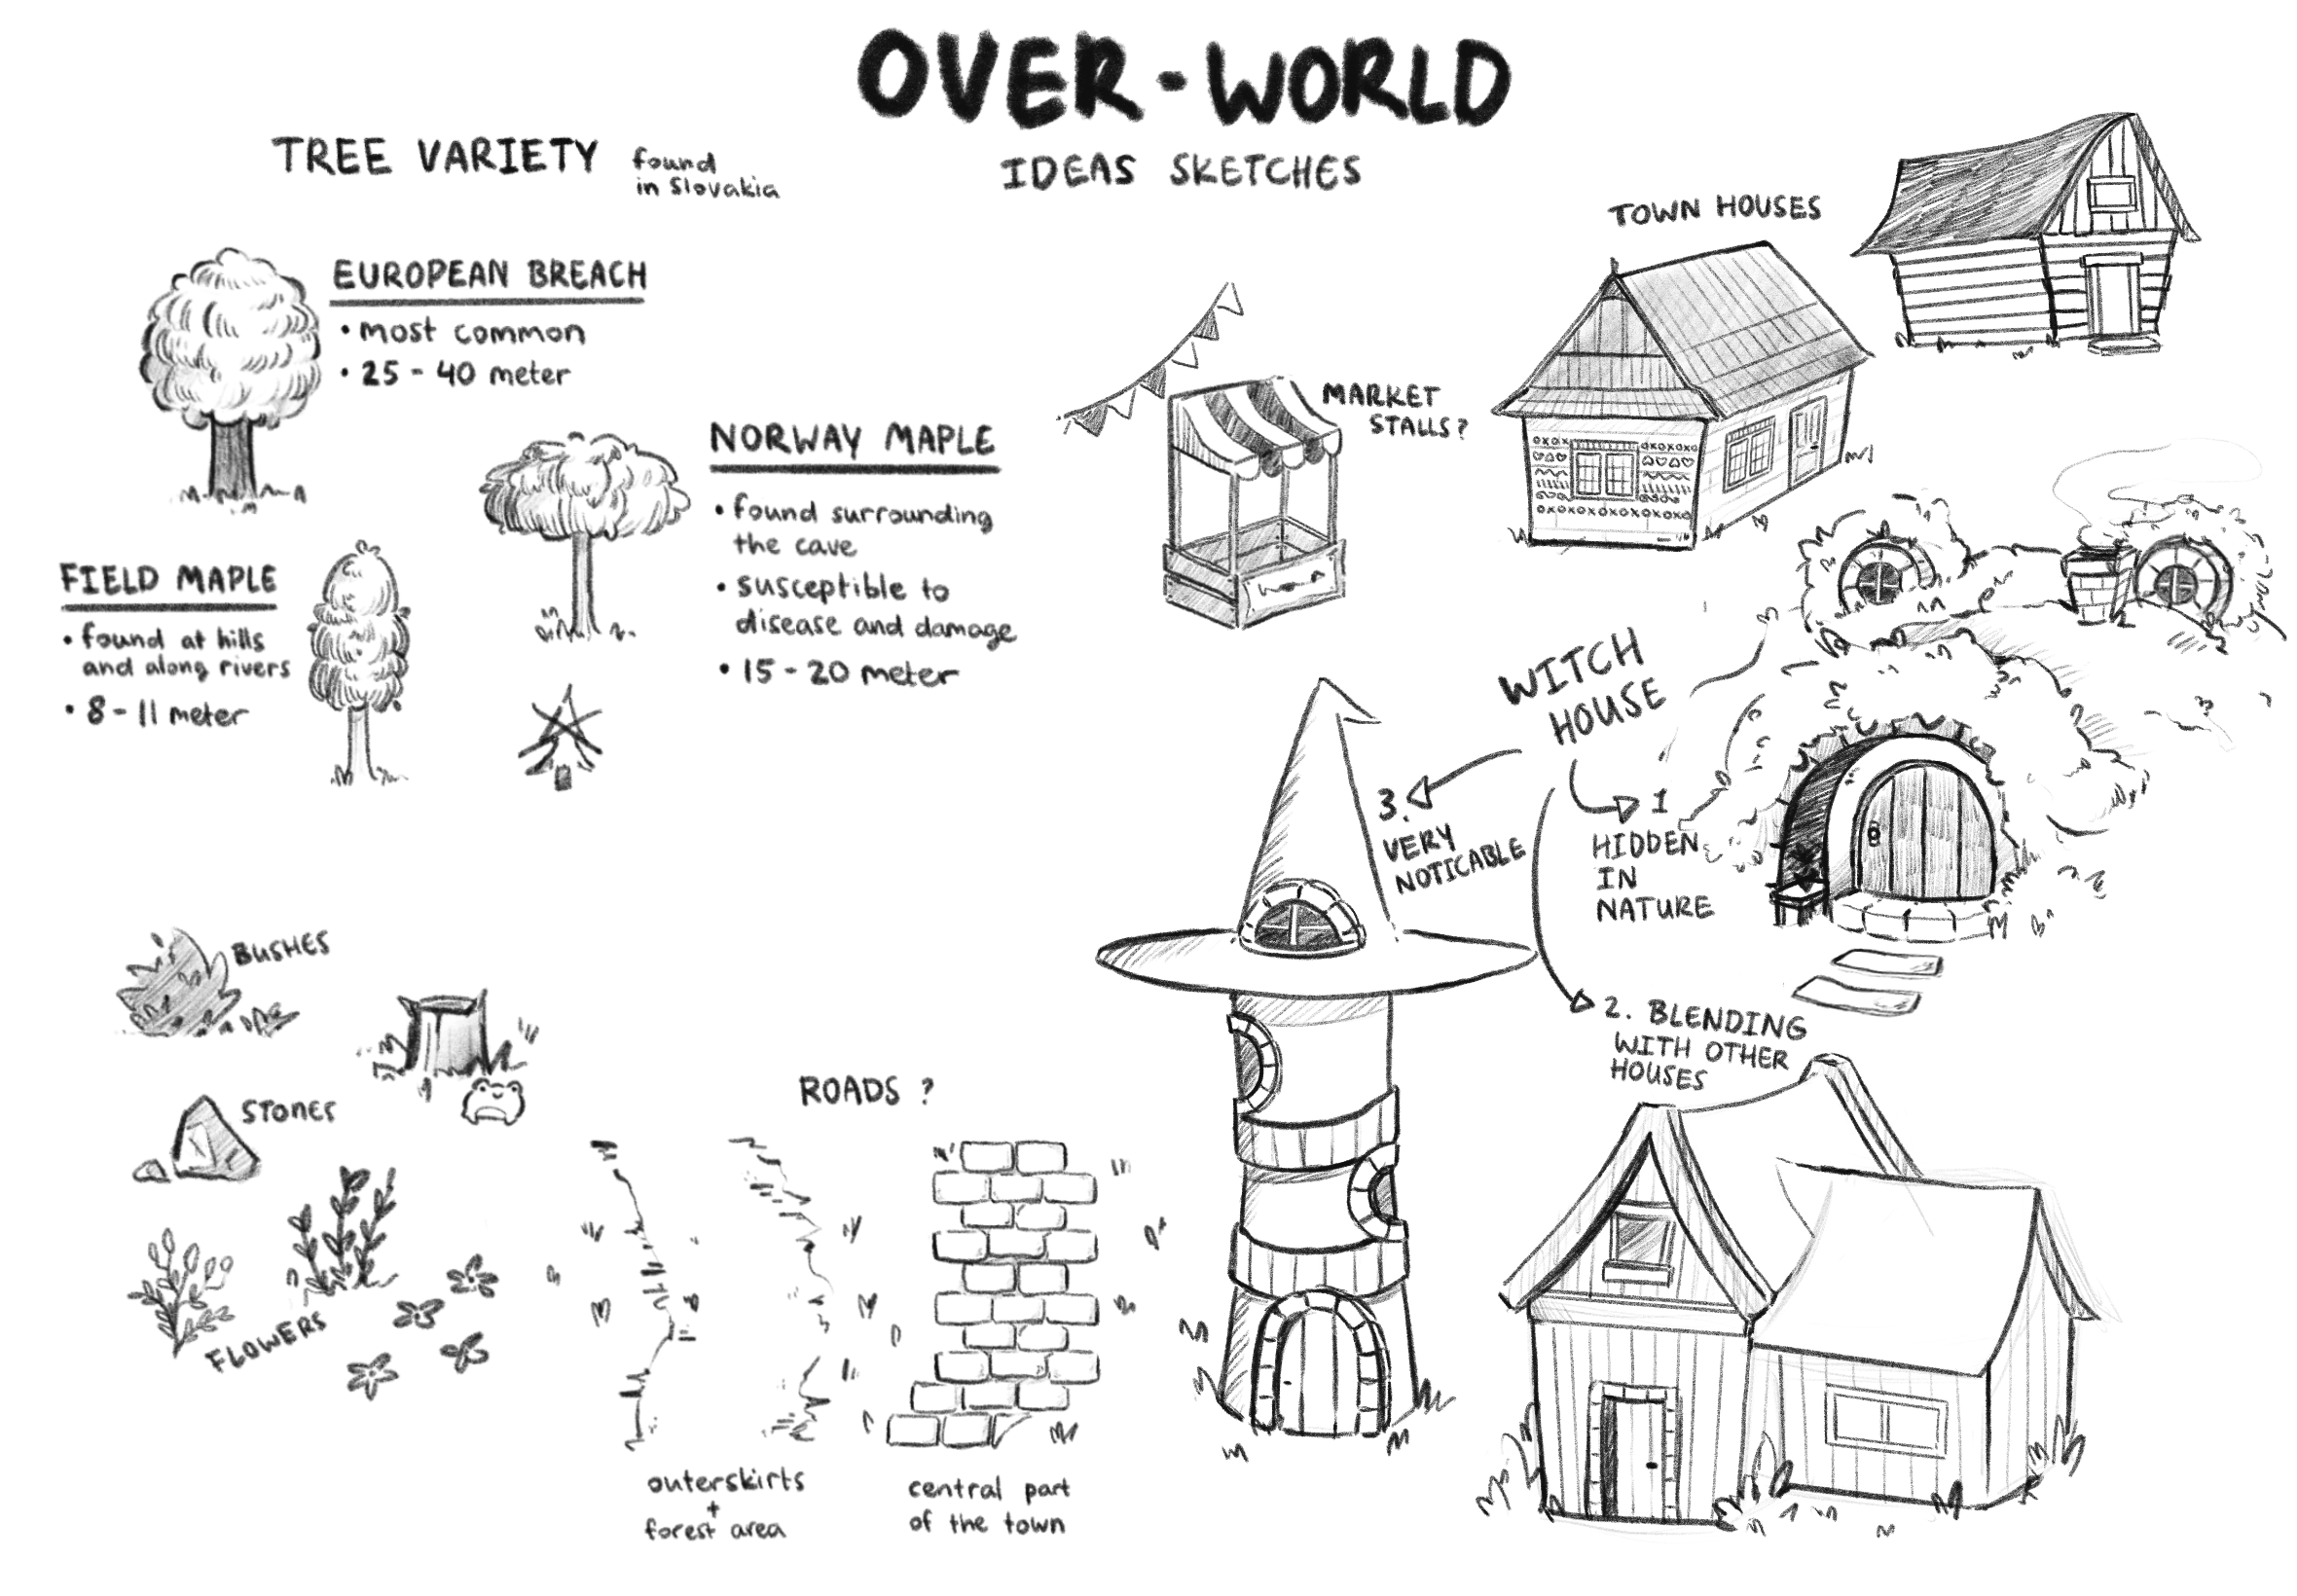 OVER-WORLD
IDEAS SKETCHES
TREE VARIETY found
in Slovakia
EUROPEAN BREACH
• most common
• 25 - 40 meter
NORWAY MAPLE
• found surrounding
the cave
• susceptible to
disease and damage
• 15 - 20 meter
FIELD MAPLE
• found at hills
and along rivers
• 8 - 11 meter
BUSHES
STONES
FLOWERS
ROADS ?
outerskirts
+
forest area
central part
of the town
MARKET
STALLS?
TOWN HOUSES
WITCH
HOUSE
1
HIDDEN
IN
NATURE
2. BLENDING
WITH OTHER
HOUSES
3.
VERY
NOTICABLE